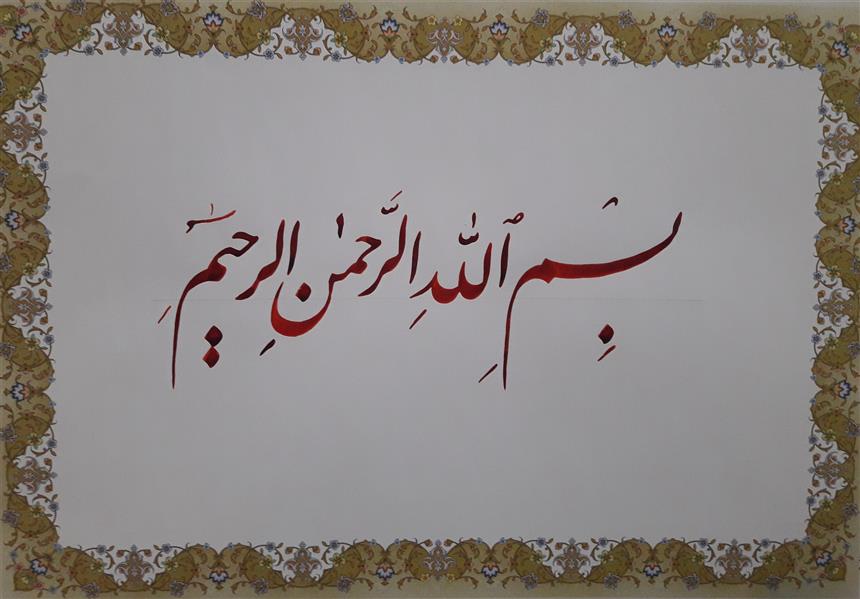 بِسْمِ ٱللّٰهِ الرَّحْمٰنِ الرحیمِ